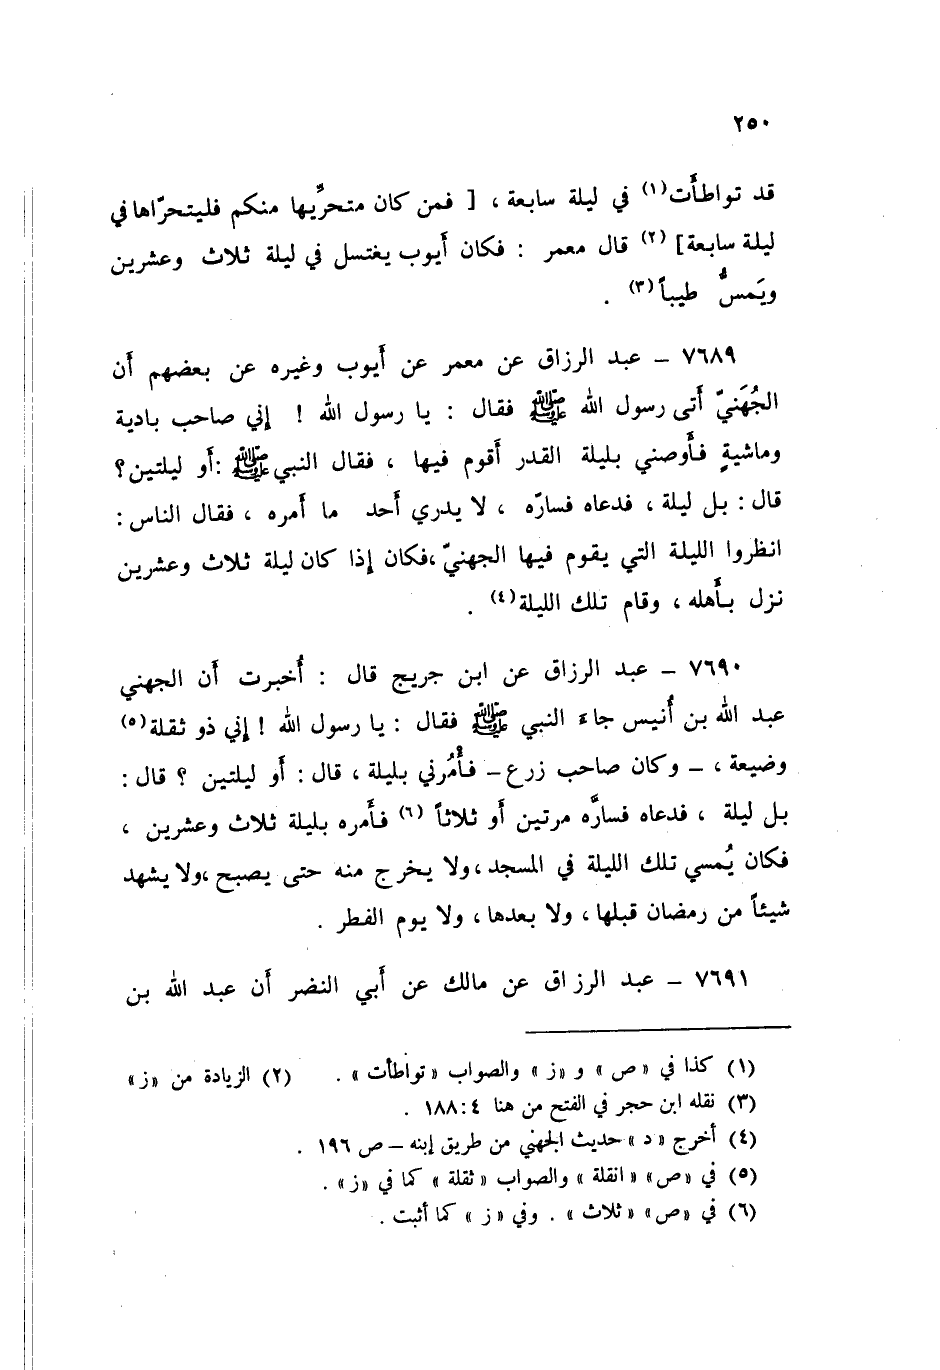 ٢٥٠
قد تواطأَت(١) في ليلة سابعة ، [ فمن كان متحرِّيها منكم فليتحرّاها في
ليلة سابعة] (٢) قال معمر : فكان أَيوب يغتسل في ليلة ثلاث وعشرين
ويَمسُّ طيباً(٣) .
٧٦٨٩ – عبد الرزاق عن معمر عن أَيوب وغيره عن بعضهم أَن
الجُهَنيّ أَتى رسول الله ﷺ فقال : يا رسول الله ! إني صاحب بادية
وماشيةٍ فأَوصني بليلة القدر أَقوم فيها ، فقال النبي ﷺ :أَو ليلتين؟
قال : بل ليلة ، فدعاه فسارّه ، لا يدري أَحد ما أَمره ، فقال الناس :
انظروا الليلة التي يقوم فيها الجهنيّ ،فكان إِذا كان ليلة ثلاث وعشرين
نزل بأَهله ، وقام تلك الليلة(٤) .
٧٦٩٠ – عبد الرزاق عن ابن جريج قال : أُخبرت أَن الجهني
عبد الله بن أُنيس جاءَ النبي ﷺ فقال : يا رسول الله ! إني ذو ثقلة(٥)
وضيعة ، – وكان صاحب زرع – فأْمُرني بليلة ، قال : أَو ليلتين ؟ قال :
بل ليلة ، فدعاه فسارَّه مرتين أَو ثلاثاً (٦) فأَمره بليلة ثلاث وعشرين ،
فكان يُمسي تلك الليلة في المسجد ،ولا يخرج منه حتى يصبح ،ولا يشهد
شيئاً من رمضان قبلها ، ولا بعدها ، ولا يوم الفطر .
٧٦٩١ – عبد الرزاق عن مالك عن أَبي النضر أَن عبد الله بن
(١) كذا في «ص» و «ز» والصواب «تواطأت» . (٢) الزيادة من «ز»
(٣) نقله ابن حجر في الفتح من هنا ٤ : ١٨٨ .
(٤) أخرج «د» حديث الجهني من طريق إبنه – ص ١٩٦ .
(٥) في «ص» «انقلة» والصواب «ثقلة» كما في «ز» .
(٦) في «ص» «ثلاث» . وفي «ز» كما أثبت .